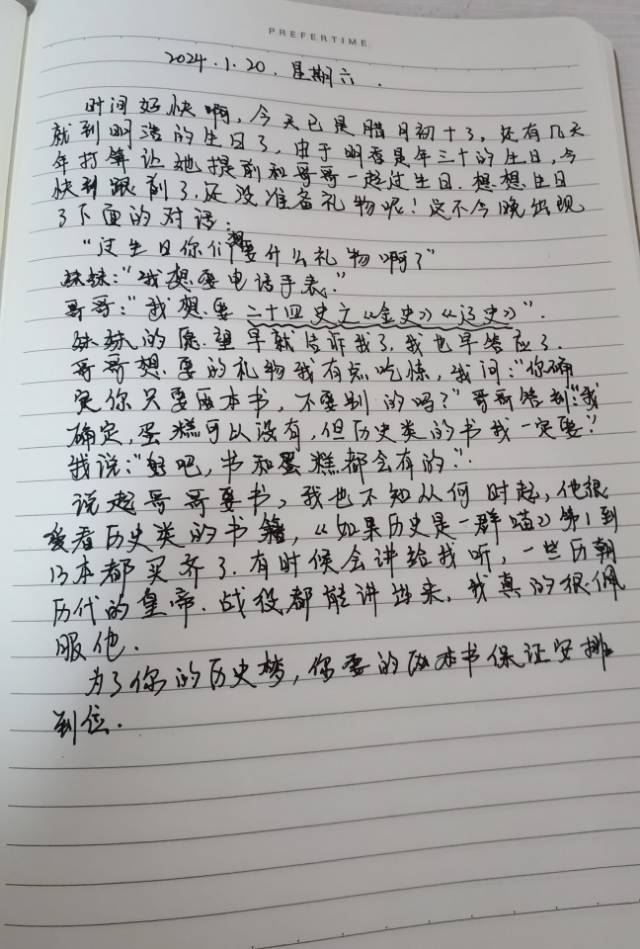 PREFERTIME
2024.1.20.星期六.
时间好快啊,今天已是腊月初十了,还有几天
就到明浩的生日了,由于明香是年三十的生日,今
年打算让她提前和哥哥一起过生日.想想生日
快到跟前了,还没准备礼物呢!这不今晚出现
了下面的对话:
“过生日你们想要什么礼物啊?”
妹妹:“我想要电话手表.”
哥哥:“我想要二十四史之《金史》《辽史》”.
妹妹的愿望早就告诉我了,我也早答应了.
哥哥想要的礼物我有点吃惊,我问:“你确
定你只要两本书,不要别的吗?”哥哥答到:“我
确定,蛋糕可以没有,但历史类的书我一定要.”
我说:“好吧,书和蛋糕都会有的.”
说起哥哥要书,我也不知从何时起,他很
爱看历史类的书籍,《如果历史是一群喵》第1到
13本都买齐了.有时候会讲给我听,一些历朝
历代的皇帝.战役都能讲出来.我真的很佩
服他.
为了你的历史梦,你要的两本书保证安排
到位.